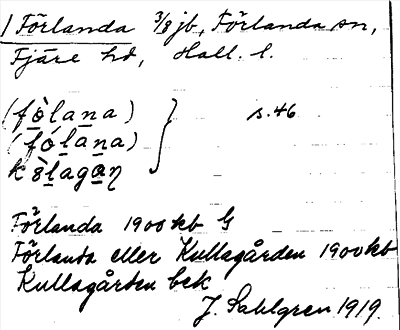 1 Förlanda 3/8 jb, Förlanda sn,
Fjäre hd, Hall. l.
(fȯ̱̀lana) } s. 46
(fólana)
kòlagan
Förlanda 1900 kb G
Förlanda eller Kullagården 1900 kb
Kullagården bek
J. Sahlgren 1919.